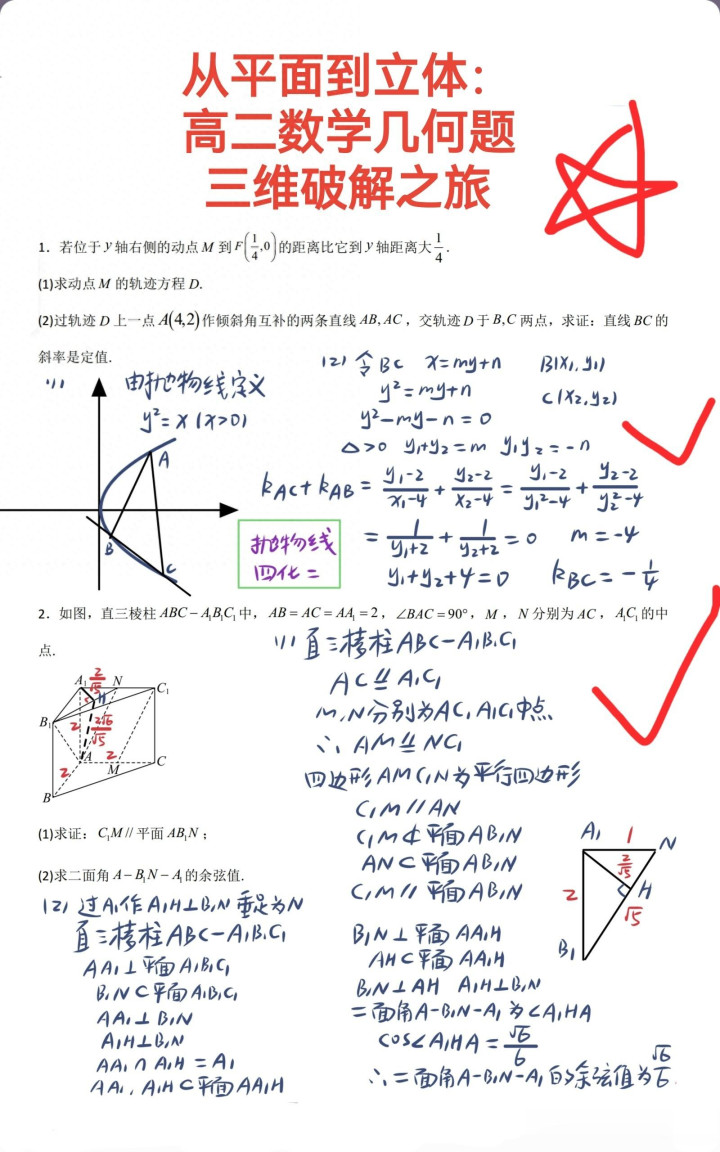 从平面到立体：
高二数学几何题
三维破解之旅
1．若位于 y 轴右侧的动点 M 到 F(1/4,0) 的距离比它到 y 轴距离大 1/4．
(1)求动点 M 的轨迹方程 D.
(2)过轨迹 D 上一点 A(4,2) 作倾斜角互补的两条直线 AB, AC，交轨迹 D 于 B,C 两点，求证：直线 BC 的
斜率是定值.
(1) 由抛物线定义
y²=x (x>0)
A
B
C
(2) 令BC x=my+n B(x₁,y₁)
y²=my+n C(x₂,y₂)
y²-my-n=0
△>0 y₁+y₂=m y₁y₂=-n
k_AC+k_AB = (y₁-2)/(x₁-4) + (y₂-2)/(x₂-4) = (y₁-2)/(y₁²-4) + (y₂-2)/(y₂²-4)
= 1/(y₁+2) + 1/(y₂+2) = 0 m=-4
y₁+y₂+4=0 k_BC=-1/4
抛物线
四化二
2．如图，直三棱柱 ABC-A₁B₁C₁ 中，AB=AC=AA₁=2，∠BAC=90°，M，N 分别为 AC，A₁C₁ 的中
点.
A₁ 2/√5 N
H C₁
B₁ 2 2√6/√5
A 2 C
2 M
B
(1)求证：C₁M // 平面 AB₁N；
(2)求二面角 A-B₁N-A₁ 的余弦值.
(1) 直三棱柱ABC-A₁B₁C₁
AC⫽A₁C₁
M,N分别为AC,A₁C₁中点
∴ AM⫽NC₁
四边形AMC₁N为平行四边形
C₁M//AN
C₁M⊄平面AB₁N
AN⊂平面AB₁N
C₁M//平面AB₁N
A₁ 1 N
2/√5
2 H
√5
B₁
(2) 过A₁作A₁H⊥B₁N 垂足为N
直三棱柱ABC-A₁B₁C₁
AA₁⊥平面A₁B₁C₁
B₁N⊂平面A₁B₁C₁
AA₁⊥B₁N
A₁H⊥B₁N
AA₁∩A₁H=A₁
AA₁,A₁H⊂平面AA₁H
B₁N⊥平面AA₁H
AH⊂平面AA₁H
B₁N⊥AH A₁H⊥B₁N
二面角A-B₁N-A₁为∠A₁HA
cos∠A₁HA=√6/6
∴二面角A-B₁N-A₁的余弦值为√6/6.